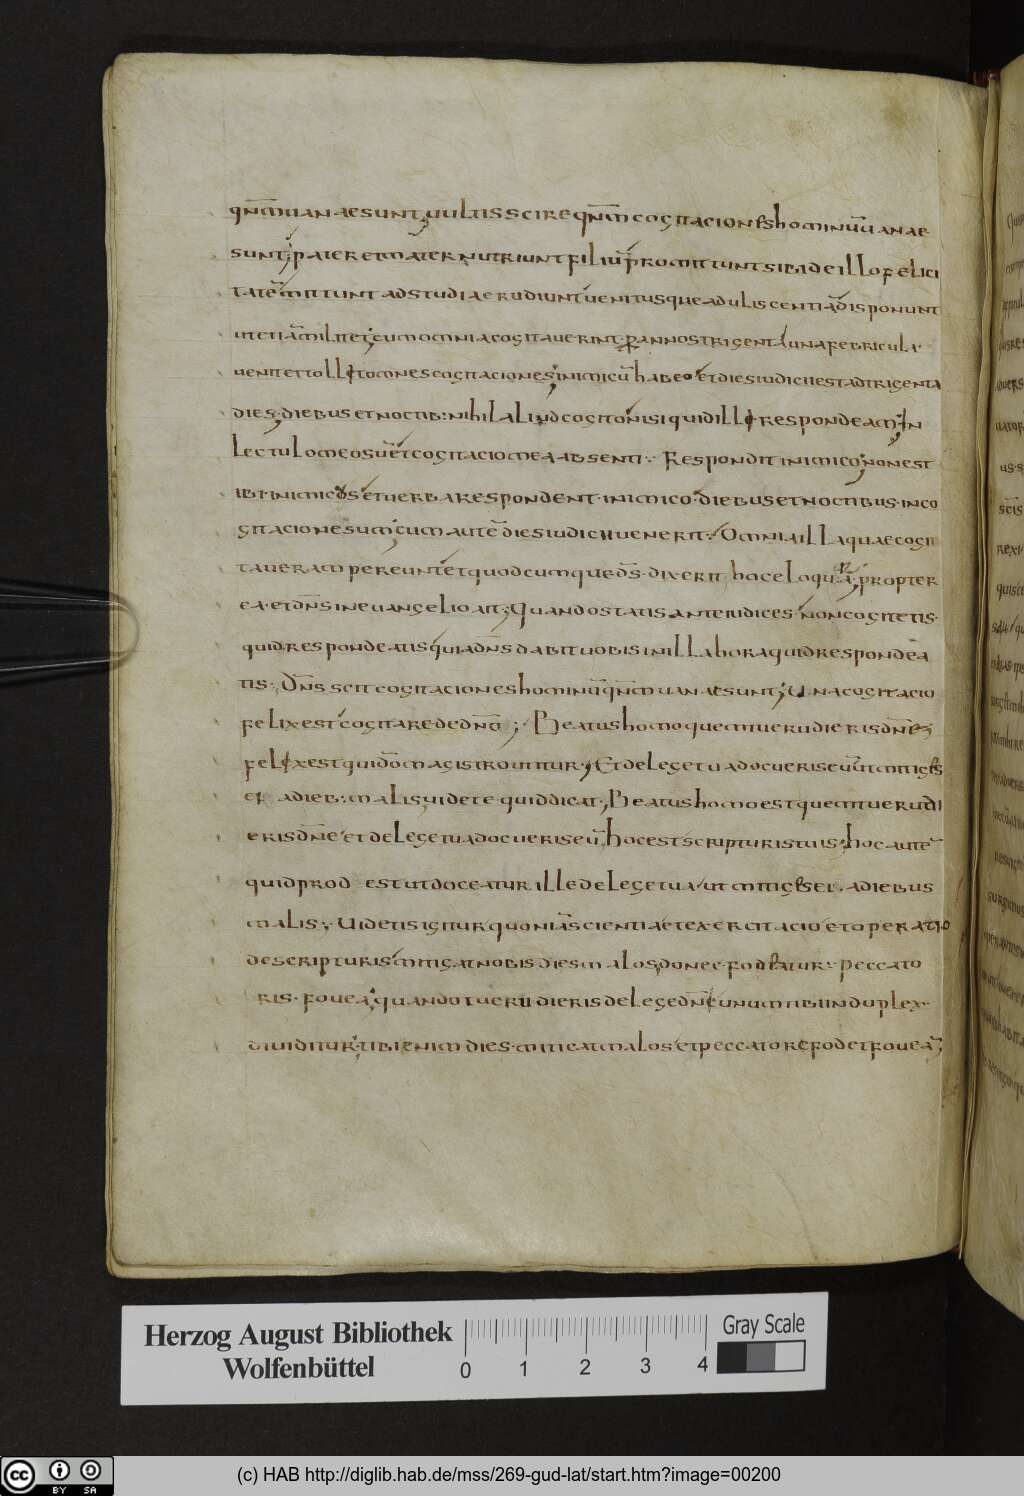 qnm uanae sunt; uultis scire qnm cogitaciones hominū uanae
sunt; pater et mater nutriunt filiū promittunt sibi de illo felici
tatē mittunt ad studia erudiunt uenit usque aduliscentiā disponunt
militet; cum omnia cogitauerint per annos trigenta una febricula
uenit et tollit omnes cogitaciones; inimicū habeo et dies iudicii est ad trigenta
dies; diebus et noctib: nihil aliud cogito nisi quid illi respondeam; in
lectulo meo sū et cogitacio mea absenti. Respondit inimico; non est
ibi inimicus et uerba respondent inimico diebus et noctibus in co
gitacione sum; cum autē dies iudicii uenerit. Omnia illa quae cogi
taueram pereunt et quodcumque ds dixerit hoc eloquar; propter
ea et dns in euangelio ait; Quando statis ante iudices non cogitetis
quid respondeatis quia dns dabit uobis in illa hora quid respondea
tis. Dns scit cogitaciones hominū qnm uanae sunt; Una cogitacio
felix est cogitare de dno; Beatus homo quem tu erudieris dne;
felix est qui dom magistro utitur; Et de lege tua docueris eū ut mitiges
ei a dieb: malis uidete quid dicat; Beatus homo est quem tu erudi
eris dne et de lege tua docueris eū hoc est scripturis tuis; hoc autē
quid prod est ut doceatur ille de lege tua ut mitiges ei a diebus
malis; Uidetis igitur quoniā scientia et exercitacio et operatio
de scripturis mitigat nobis dies malos donec fodiatur peccato
ris fouea; quando tu erudieris de lege dne unum tibi in duplex
diuiditur; tibi enim dies miticat malos et peccatore fodet foueā;
Herzog August Bibliothek
Wolfenbüttel
0 1 2 3 4
Gray Scale
cc BY SA
(c) HAB http://diglib.hab.de/mss/269-gud-lat/start.htm?image=00200